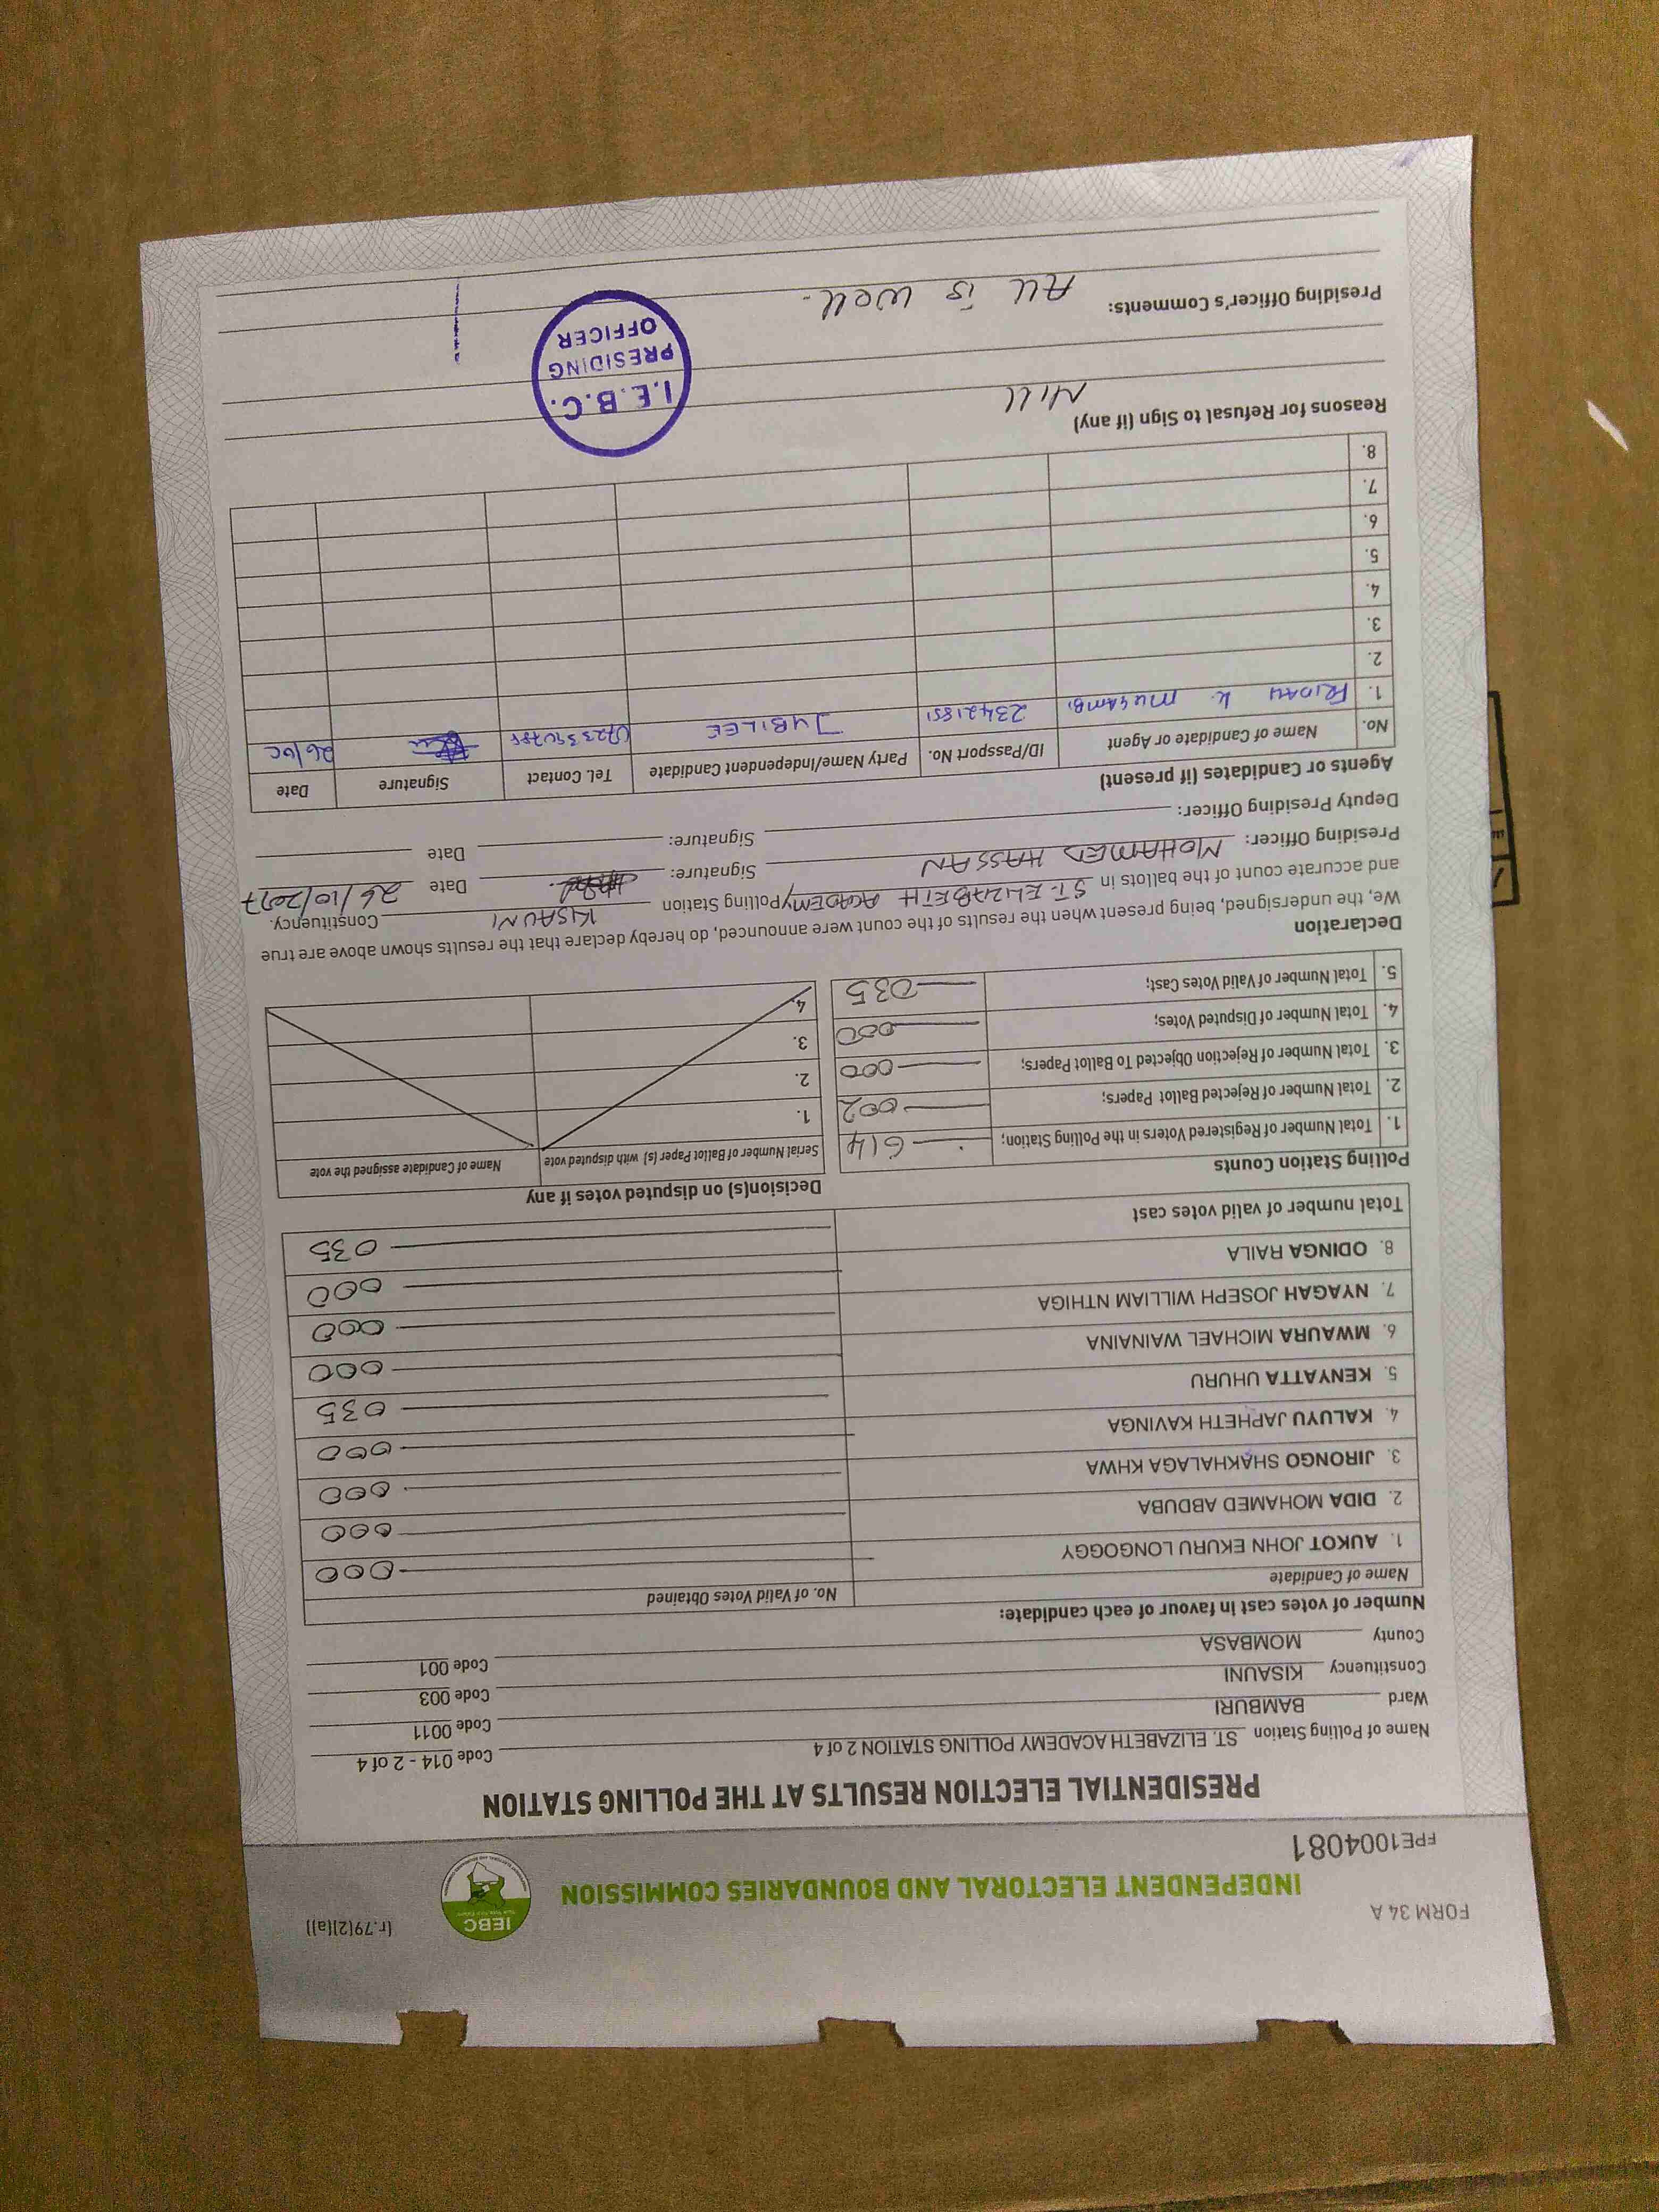 FORM 34 A
(r.79(2)(a))
INDEPENDENT ELECTORAL AND BOUNDARIES COMMISSION
IEBC
FPE1004081
PRESIDENTIAL ELECTION RESULTS AT THE POLLING STATION
Name of Polling Station ST. ELIZABETH ACADEMY POLLING STATION 2 of 4 Code 014 - 2 of 4
Ward BAMBURI Code 0011
Constituency KISAUNI Code 003
County MOMBASA Code 001
Number of votes cast in favour of each candidate:
Name of Candidate No. of Valid Votes Obtained
1. AUKOT JOHN EKURU LONGOGGY 000
2. DIDA MOHAMED ABDUBA 000
3. JIRONGO SHAKHALAGA KHWA 000
4. KALUYU JAPHETH KAVINGA 000
5. KENYATTA UHURU 035
6. MWAURA MICHAEL WAINAINA 000
7. NYAGAH JOSEPH WILLIAM NTHIGA 000
8. ODINGA RAILA 000
Total number of valid votes cast 035
Polling Station Counts
1. Total Number of Registered Voters in the Polling Station; 614
2. Total Number of Rejected Ballot Papers; 002
3. Total Number of Rejection Objected To Ballot Papers; 000
4. Total Number of Disputed Votes; 000
5. Total Number of Valid Votes Cast; 035
Decision(s) on disputed votes if any
Serial Number of Ballot Paper (s) with disputed vote Name of Candidate assigned the vote
1.
2.
3.
4.
Declaration
We, the undersigned, being present when the results of the count were announced, do hereby declare that the results shown above are true
and accurate count of the ballots in ST. ELIZABETH ACADEMY Polling Station KISAUNI Constituency.
Presiding Officer: MOHAMED HASSAN Signature: Date 26/10/2017
Deputy Presiding Officer: Signature: Date
Agents or Candidates (if present)
No. Name of Candidate or Agent ID/Passport No. Party Name/Independent Candidate Tel. Contact Signature Date
1. FRIDAH K MUGAMBI 23421851 JUBILEE
2.
3.
4.
5.
6.
7.
8.
Reasons for Refusal to Sign (if any)
NILL
Presiding Officer's Comments: All is well.
I.E.B.C.
PRESIDING
OFFICER